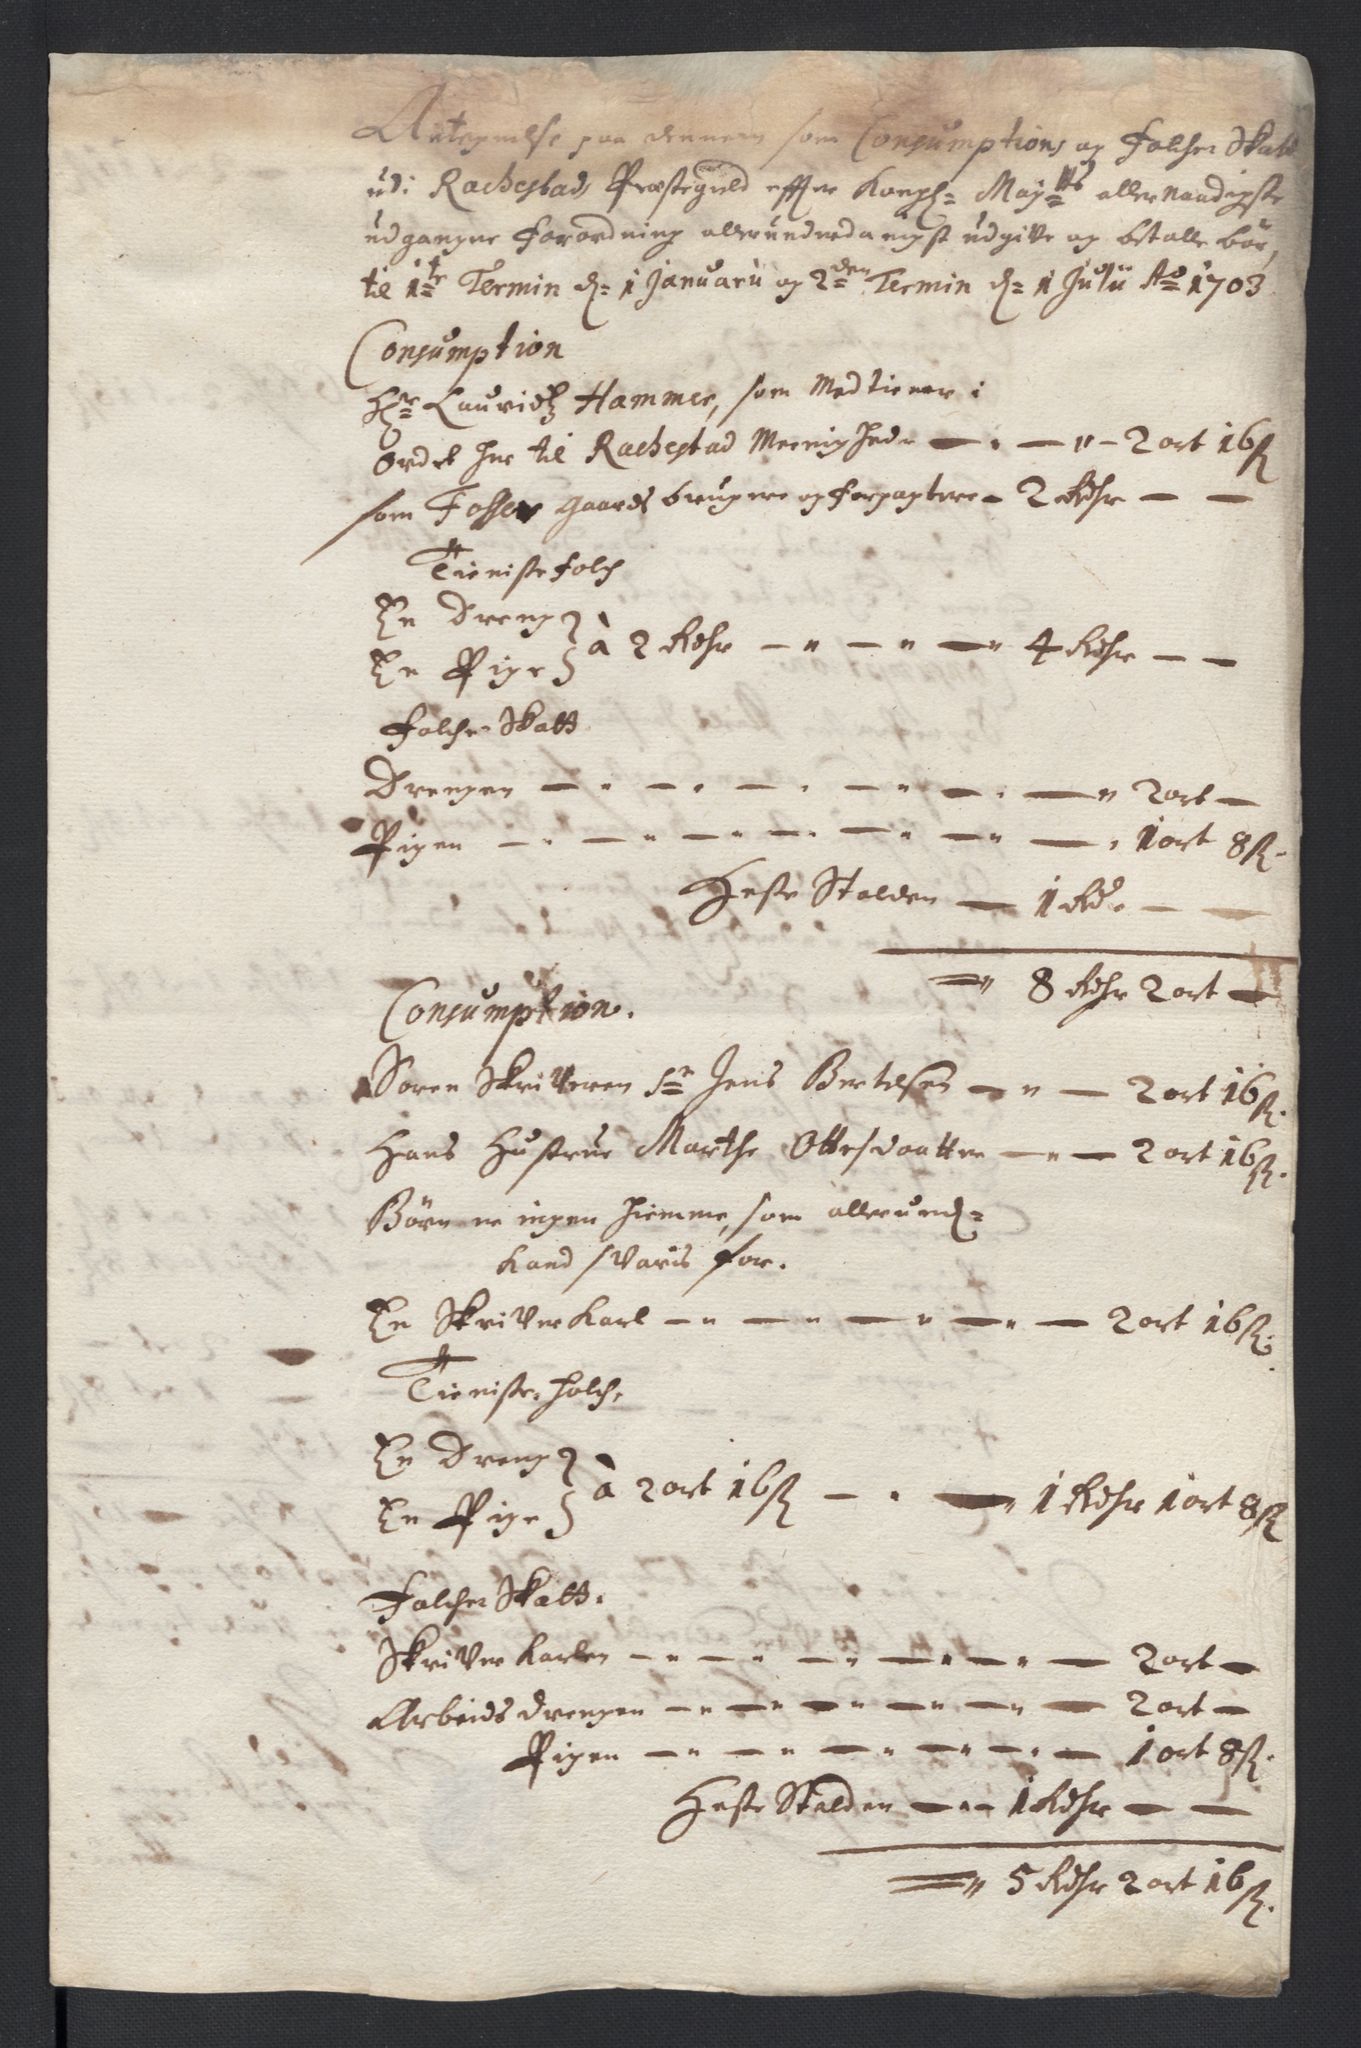 Antegnelse paa dennem som Consumptions og Folche Skatt
udi Rachestads Præstegield effter Kongl= May=tts allernaadigste
udgangne forordning allerunderdanigst udgive og betalle bör,
til 1=te Termin d= 1 Januarii og 2=den Termin d= 1 Julii Ao= 1703
Consumption
Hr= Lauridtz Hammer, som Medtiener i
Ordet her til Rachestad Meenighede — · — " – 2 ort 16 ß
som Fosser gaards bruger og forpagter – 2 Rdhr — —
Tieniste folch
En Dreng
En Pige } à 2 Rdhr — " — " — " 4 Rdhr — —
Folche Skatt
Drengen — · — · — · — " — · — " 2 ort —
Pigen — · — " — " — · — " — " — · 1 ort 8 ß.
Heste Stalden — 1 Rd. — —
= " 8 Rdhr 2 ort —
Consumption.
Soren Skriveren Sr= Jens Bertelsen — " — 2 ort 16 ß.
Hans Hustrue Marthe Ottesdaatter — " — 2 ort 16 ß.
Börn er ingen hiemme, som allerund=
kand svaris for.
En Skriver Karl — " — " — " — " — 2 ort 16 ß.
Tieniste folch,
En Dreng
En Pige } à 2 ort 16 ß — · — " 1 Rdhr 1 ort 8 ß
Folche Skatt.
Skriver Karlen — " — " — " — " — " — 2 ort —
Arbeids drengen — " — " — " — " — " — 2 ort —
Pigen — " — " — " — " — · — 1 ort 8 ß.
Heste Stalden — " – 1 Rdhr — —
= " 5 Rdhr 2 ort 16 ß.